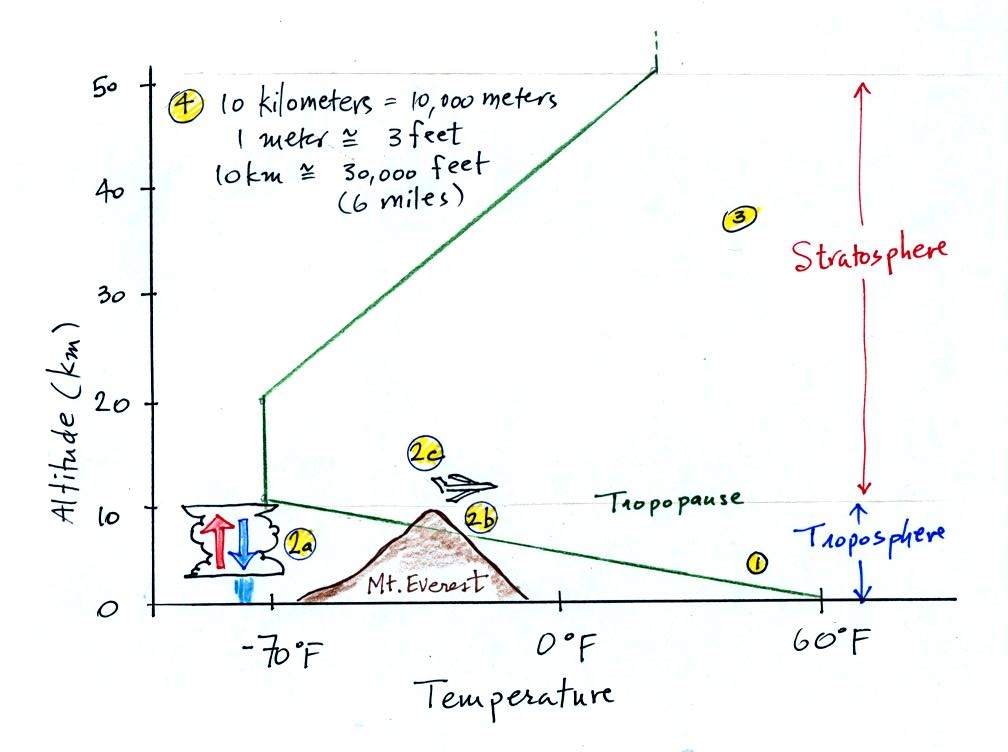 50
4 10 kilometers = 10,000 meters
1 meter ≅ 3 feet
10 km ≅ 30,000 feet
(6 miles)
40
3
Stratosphere
30
Altitude (km)
20
2c
Tropopause
10
2b
2a
Troposphere
1
Mt. Everest
0
-70°F
0°F
60°F
Temperature